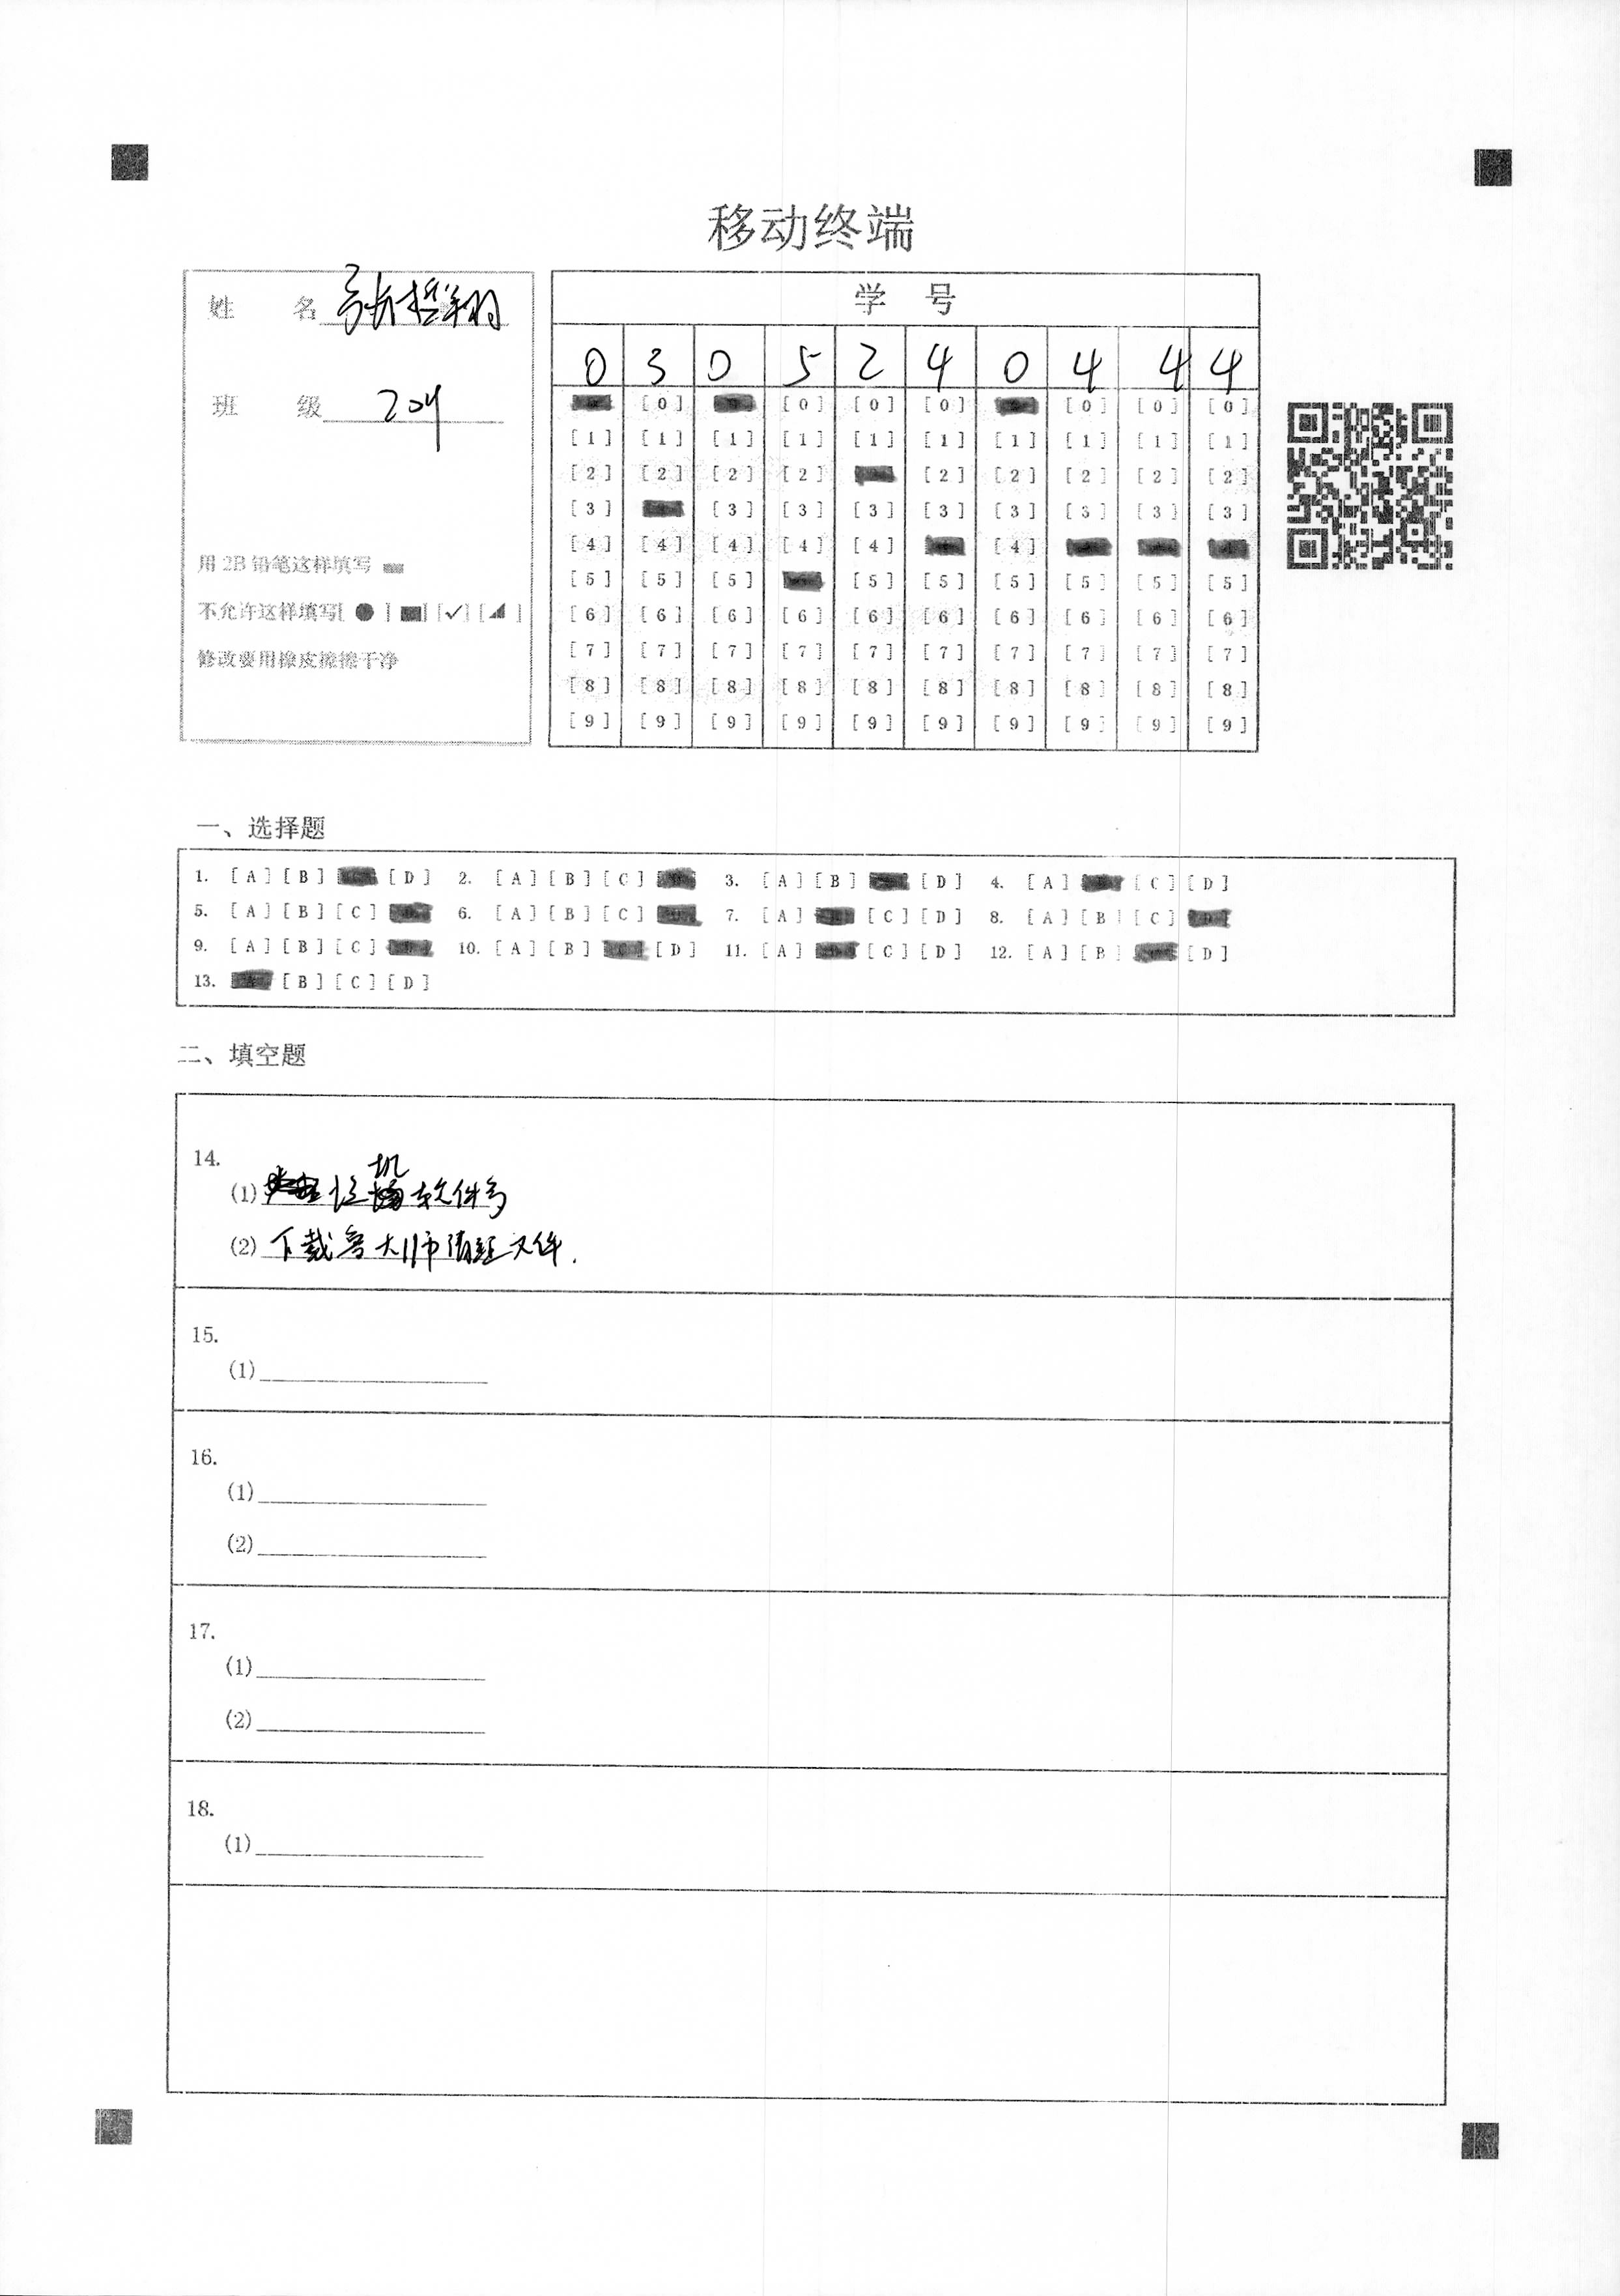 移动终端
姓 名 张哲翔
班 级 204
用 2B 铅笔这样填写
不允许这样填写[ ● ] [✓] [ ]
修改要用橡皮擦擦干净
学 号
0 3 0 5 2 4 0 4 4 4
[0] [0] [0] [0] [0] [0] [0]
[1] [1] [1] [1] [1] [1] [1] [1] [1] [1]
[2] [2] [2] [2] [2] [2] [2] [2] [2]
[3] [3] [3] [3] [3] [3] [3] [3] [3]
[4] [4] [4] [4] [4] [4]
[5] [5] [5] [5] [5] [5] [5] [5] [5]
[6] [6] [6] [6] [6] [6] [6] [6] [6] [6]
[7] [7] [7] [7] [7] [7] [7] [7] [7] [7]
[8] [8] [8] [8] [8] [8] [8] [8] [8] [8]
[9] [9] [9] [9] [9] [9] [9] [9] [9] [9]
一、选择题
1. [A] [B] [D] 2. [A] [B] [C] 3. [A] [B] [D] 4. [A] [C] [D]
5. [A] [B] [C] 6. [A] [B] [C] 7. [A] [C] [D] 8. [A] [B] [C]
9. [A] [B] [C] 10. [A] [B] [D] 11. [A] [C] [D] 12. [A] [B] [D]
13. [B] [C] [D]
二、填空题
14.
(1) 机 软件多
(2) 下载鲁大师清理文件.
15.
(1)
16.
(1)
(2)
17.
(1)
(2)
18.
(1)